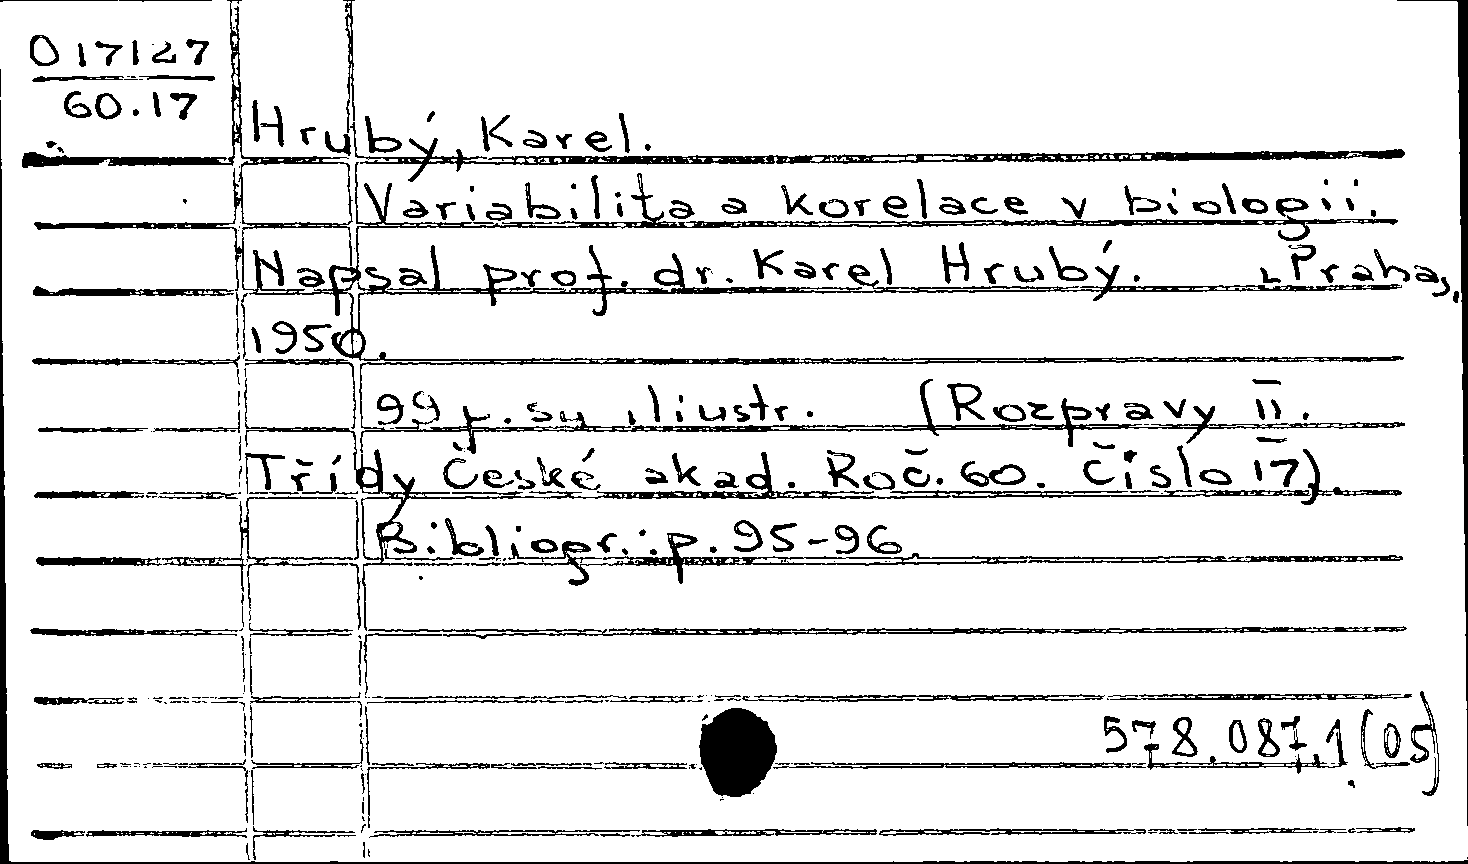 017127
60.17
Hrubý, Karel.
Variabilita a korelace v biologii.
Napsal prof. dr. Karel Hrubý. [Praha,
1950.
99 p. su iliustr. (Rozpravy II.
Třídy České akad. Roč. 60. Čislo 17).
Bibliogr.: p. 95-96.
578.087.1(05)